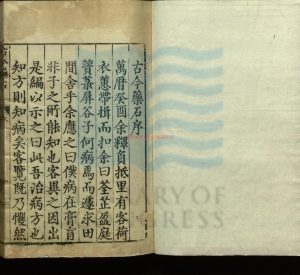 古今藥石序
萬曆癸酉余釋負抵里有客荷
衣蕙帶揖而扣余曰荃芷盈庭
薋菉屏谷子何病焉而遽求田
間舍乎余應之曰僕病在膏肓
非子之所能知也客異之因出
是編以示之曰此吾治病方也
知方則知病矣客覽既乃懼然
LIBRARY OF
CONGRESS